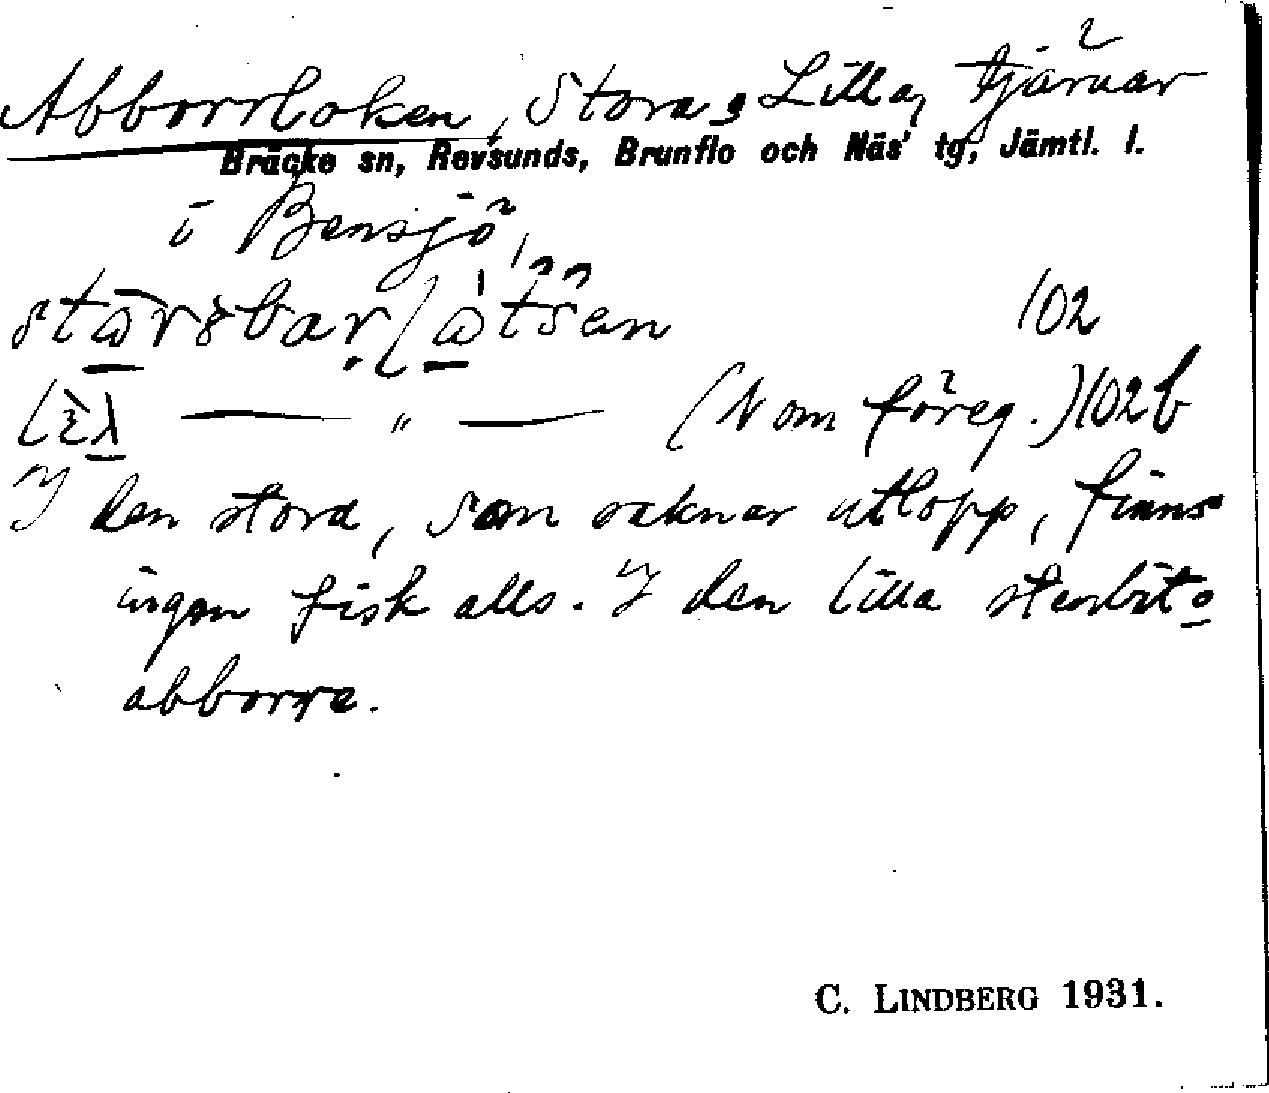 Abborrloken, Stora o Lilla, tjärnar
Bräcke sn, Revsunds, Brunflo och Näs' tg, Jämtl. l.
i Bensjö,
102
— " — (N om föreg.) 102 b
I den stora, som saknar utlopp, finns
ingen fisk alls. I den lilla stenbit o
abborre.
C. LINDBERG 1931.